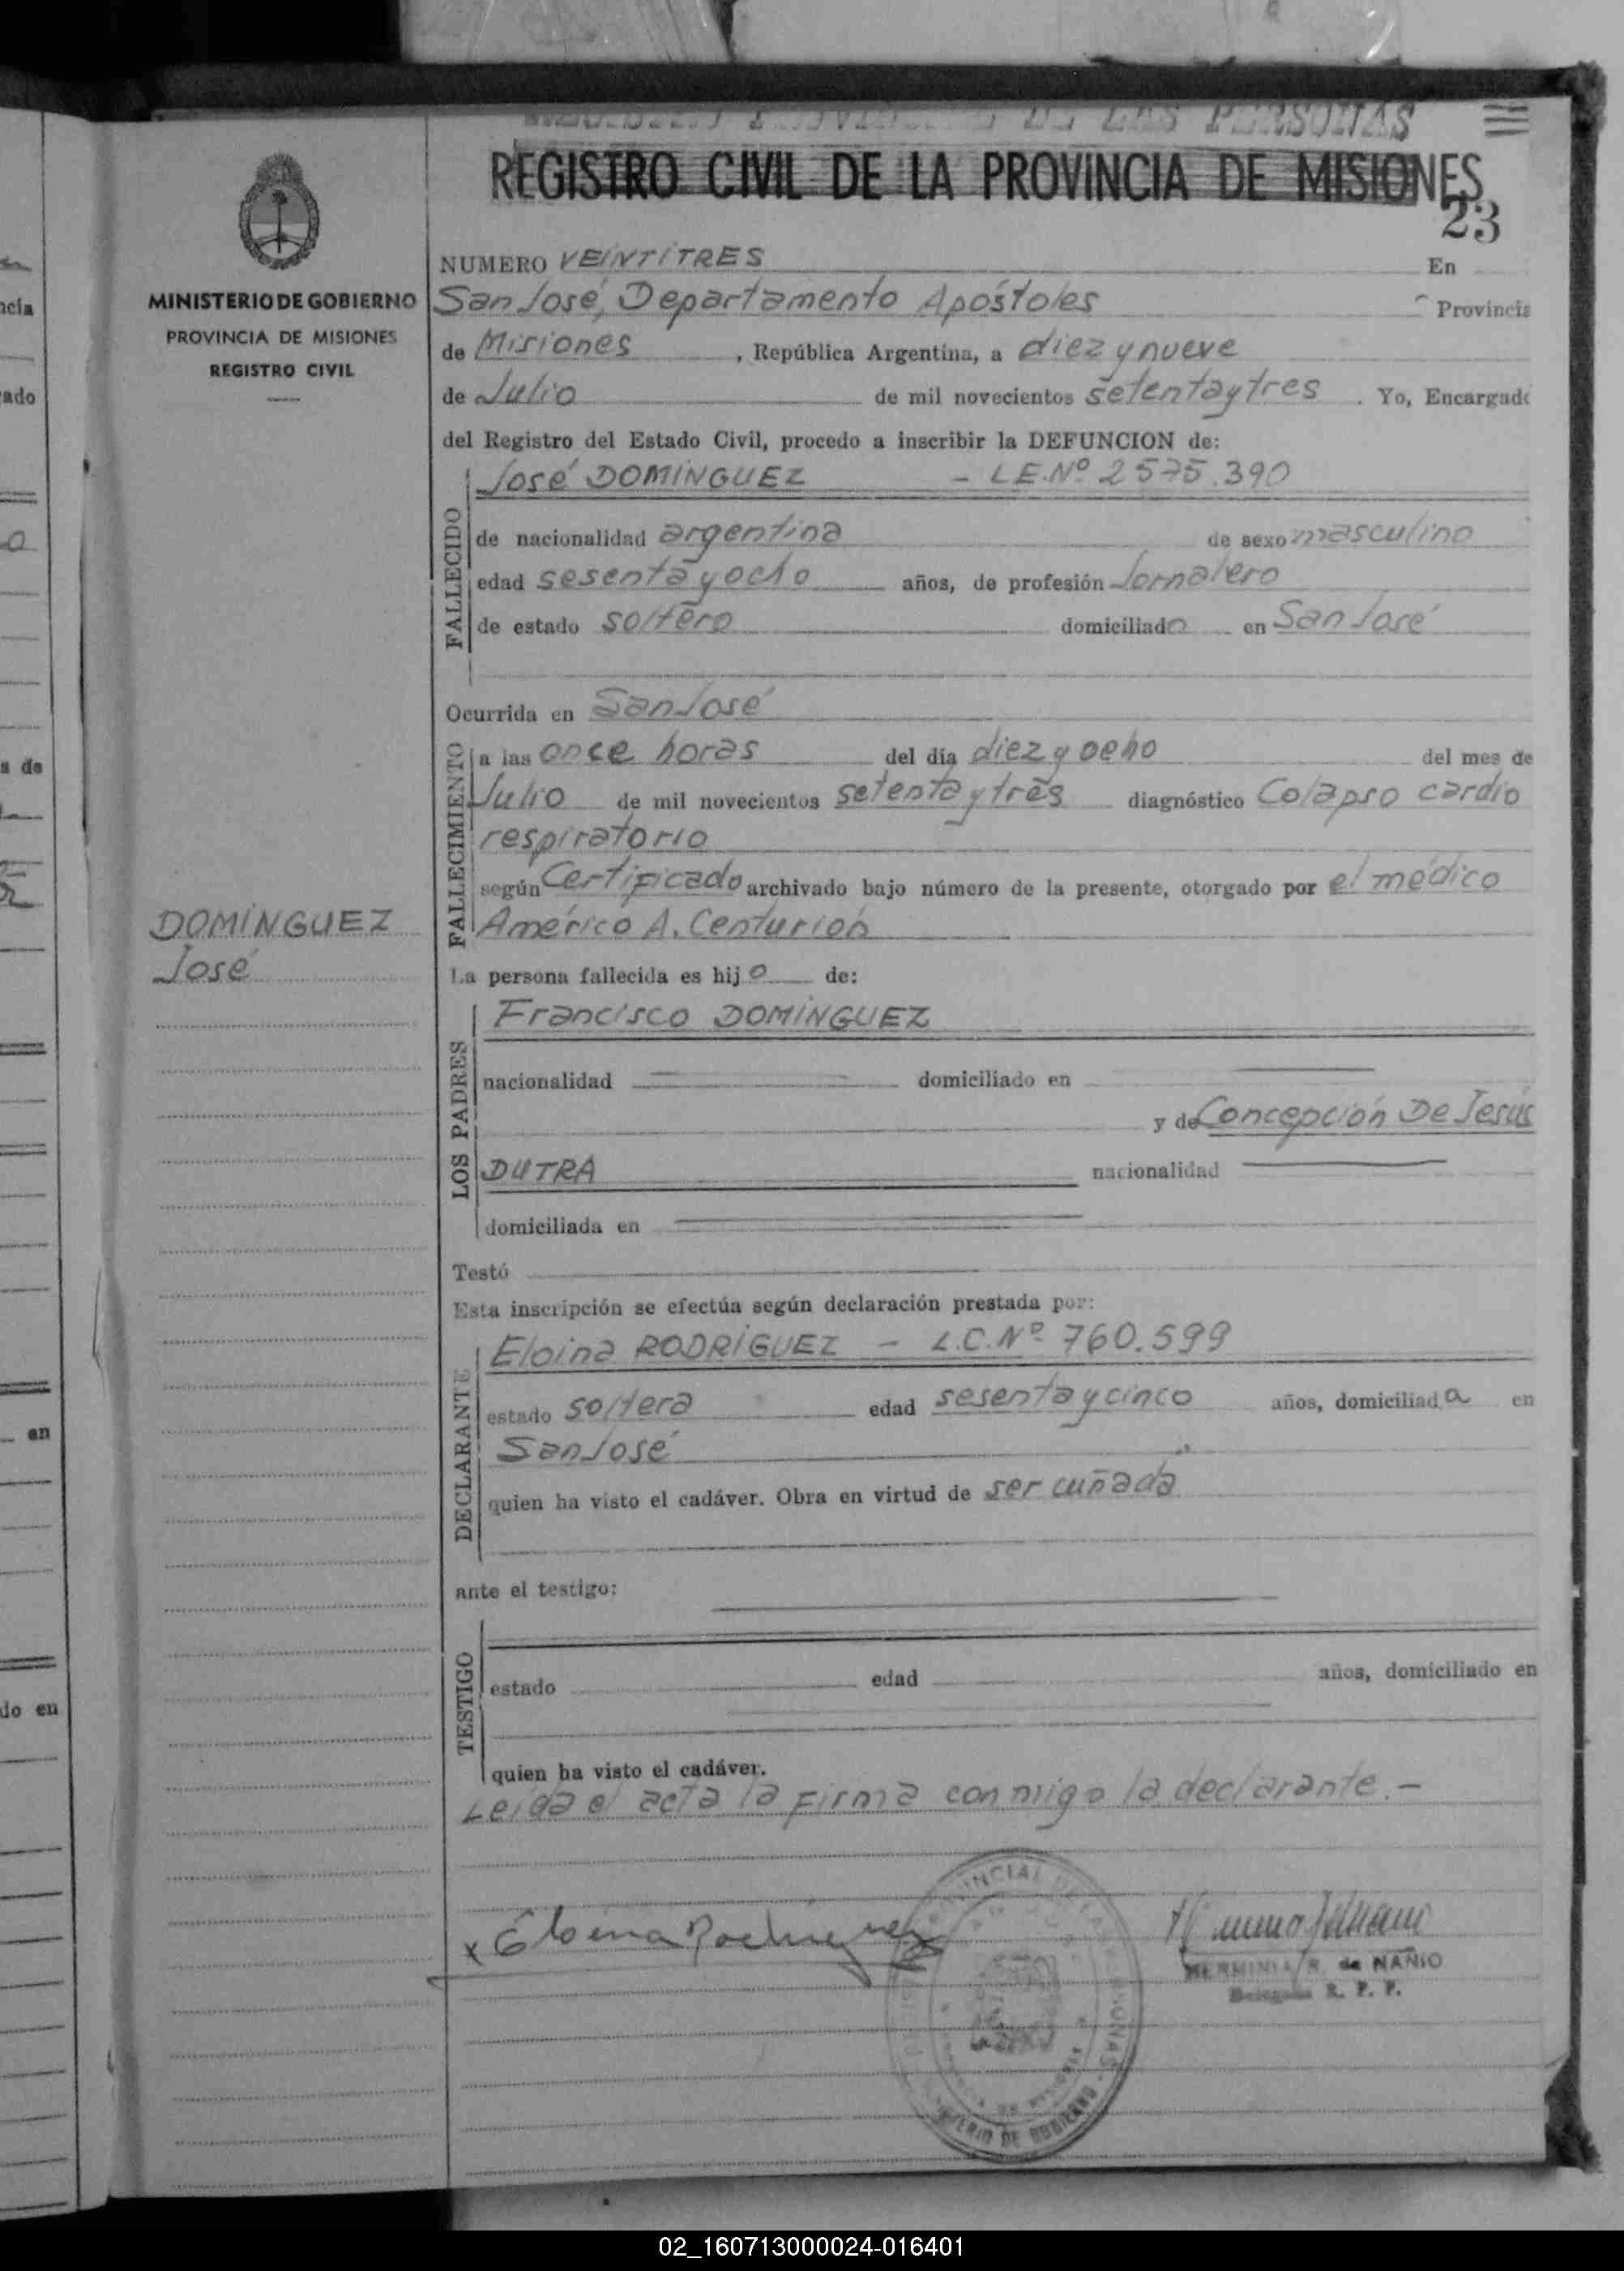 DE LAS PERSONAS
REGISTRO CIVIL DE LA PROVINCIA DE MISIONES
23
MINISTERIO DE GOBIERNO
PROVINCIA DE MISIONES
REGISTRO CIVIL
NUMERO VEINTITRES En
San José, Departamento Apóstoles Provincia
de Misiones, República Argentina, a diez y nueve
de Julio de mil novecientos setenta y tres. Yo, Encargado
del Registro del Estado Civil, procedo a inscribir la DEFUNCION de:
José DOMINGUEZ - L.E.Nº 2575.390
FALLECIDO
de nacionalidad argentina de sexo masculino
edad sesenta y ocho años, de profesión Jornalero
de estado soltero domiciliado en San José
Ocurrida en San José
FALLECIMIENTO
a las once horas del día diez y ocho del mes de
Julio de mil novecientos setenta y tres diagnóstico Colapso cardio
respiratorio
según Certificado archivado bajo número de la presente, otorgado por el médico
Américo A. Centurión
DOMINGUEZ
José
La persona fallecida es hijo de:
LOS PADRES
Francisco DOMINGUEZ
nacionalidad domiciliado en
y de Concepción De Jesús
DUTRA nacionalidad
domiciliada en
Testó
Esta inscripción se efectúa según declaración prestada por:
DECLARANTE
Eloina RODRIGUEZ - L.C.Nº 760.599
estado soltera edad sesenta y cinco años, domiciliada en
San José
quien ha visto el cadáver. Obra en virtud de ser cuñada
ante el testigo:
TESTIGO
estado edad años, domiciliado en
quien ha visto el cadáver.
Leida el acta la firma conmigo la declarante.-
x Eloina Rodriguez
HERMINIA R. de NAÑIO
Delegada R. P. P.
MINISTERIO DE GOBIERNO
ncia
ado
a
s de
en
do en
02_160713000024-016401